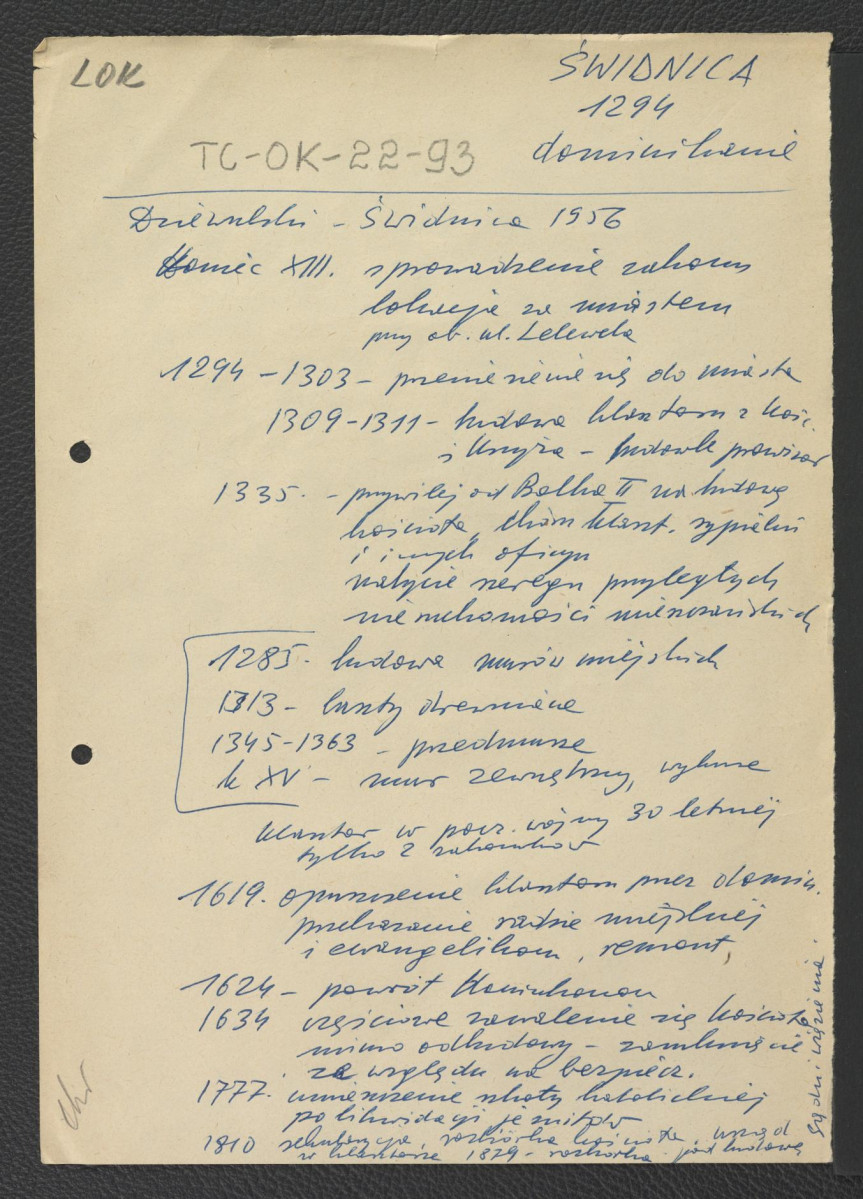 LOK
ŚWIDNICA
1294
dominikanie
TC-OK-22-93
Dziewulski - Świdnica 1956
Koniec XIII. sprowadzenie zakonu
lokacja za miastem
przy ob. ul. Lelewela
1294-1303 - przeniesienie się do miasta
1309-1311 - budowa klasztoru z kość.
i - budowle prowizor
1335. - przywilej od Bolka II na budowę
kościoła, klaszt. sypialni
i innych oficyn
nabycie szeregu przyległych
nieruchomości mieszczańskich
1285. budowa murów miejskich
1313 - baszty drewniane
1345-1363 - przedmurze
k XV - mur zewnętrzny, wykusze
klasztor w pocz. wojny 30 letniej
tylko 2 zakonników
1619. opuszczenie klasztoru przez domin.
przekazanie radzie miejskiej
i ewangelikom, remont,
1624 - powrót
1634 częściowe zawalenie się kościoła
mimo odbudowy - zamknięcie
ze względu na bezpiecz.
1777. umieszczenie szkoły katolickiej
po likwidacji jezuitów
1810 sekularyzacja, rozbiórka kościoła, urząd
w klasztorze 1879 - rozbiórka pod budowę
sądu i więzienia.